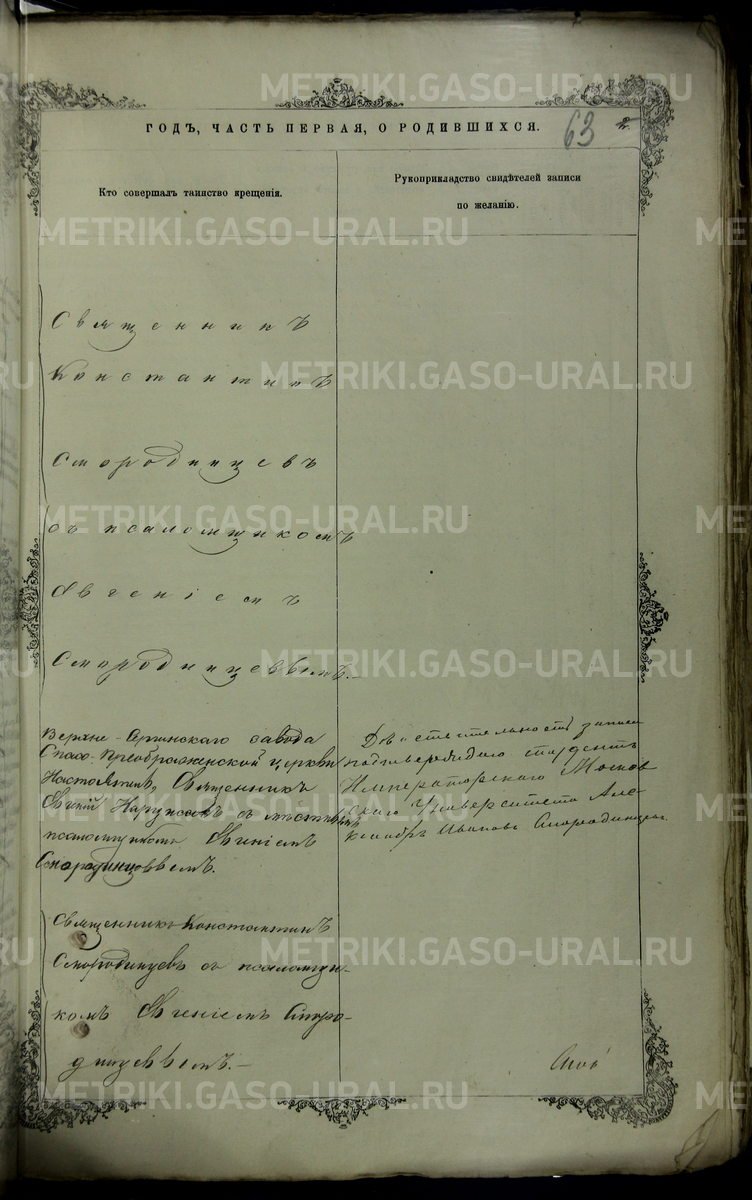 METRIKI.GASO-URAL.RU
ГОДЪ, ЧАСТЬ ПЕРВАЯ, О РОДИВШИХСЯ.
63
Кто совершалъ таинство крещенія.
Рукоприкладство свидѣтелей записи
по желанію.
METRIKI.GASO-URAL.RU
Священникъ
Константинъ
METRIKI.GASO-URAL.RU
Смородинцевъ
METRIKI.GASO-URAL.RU
съ псаломщикомъ
Евгеніемъ
METRIKI.GASO-URAL.RU
Смородинцевымъ.
Верхне-Сергинскаго завода
Спасо-Преображенской церкви
Настоятель, Священникъ
съ мѣстнымъ
псаломщикомъ Евгеніемъ
Смородинцевымъ.
Дѣйствительность записи
подтвердилъ студентъ
Императорскаго Москов
скаго Университета Але
ксандръ Ивановъ Смородинцевъ.
METRIKI.GASO-URAL.RU
Священникъ Константинъ
Смородинцевъ съ псаломщи-
METRIKI.GASO-URAL.RU
комъ Евгеніемъ Сморо-
динцевымъ.
METRIKI.GASO-URAL.RU